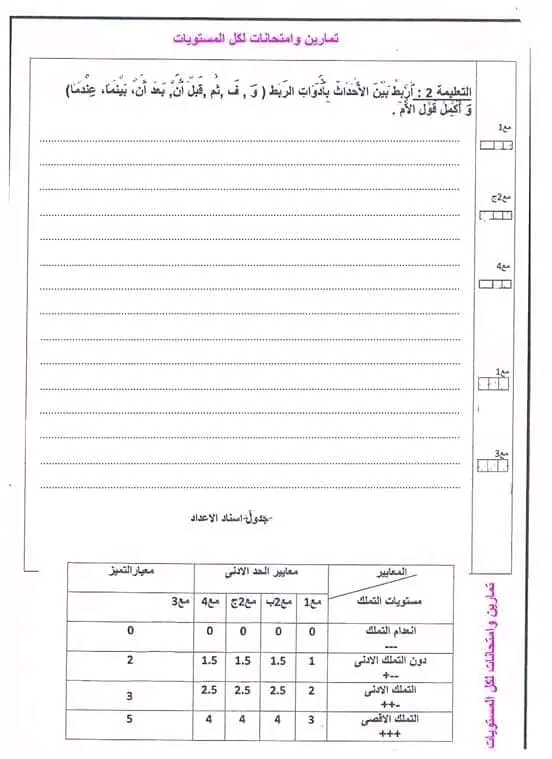 تمارين وامتحانات لكل المستويات
التعليمة 2 : أَرْبِطُ بَيْنَ الأَحْدَاثَ بِأَدَوَاتِ الرَبْط ( وَ , فَ , ثُم , قَبْلَ أَنْ, بَعْدَ أَنْ, بَيْنَمَا، عِنْدَمَا)
وَ أُكْمِلُ قَوْلَ الأُمّ .
مع1
مع2ج
مع4
مع1
مع3
-جدول اسناد الاعداد-
المعايير معايير الحد الادنى معيار التميز
مستويات التملك مع1 مع2ب مع2ج مع4 مع3
انعدام التملك 0 0 0 0 0
---
دون التملك الادنى 1 1.5 1.5 1.5 2
+--
التملك الادنى 2 2.5 2.5 2.5 3
++-
التملك الاقصى 3 4 4 4 5
+++
تمارين وامتحانات لكل المستويات